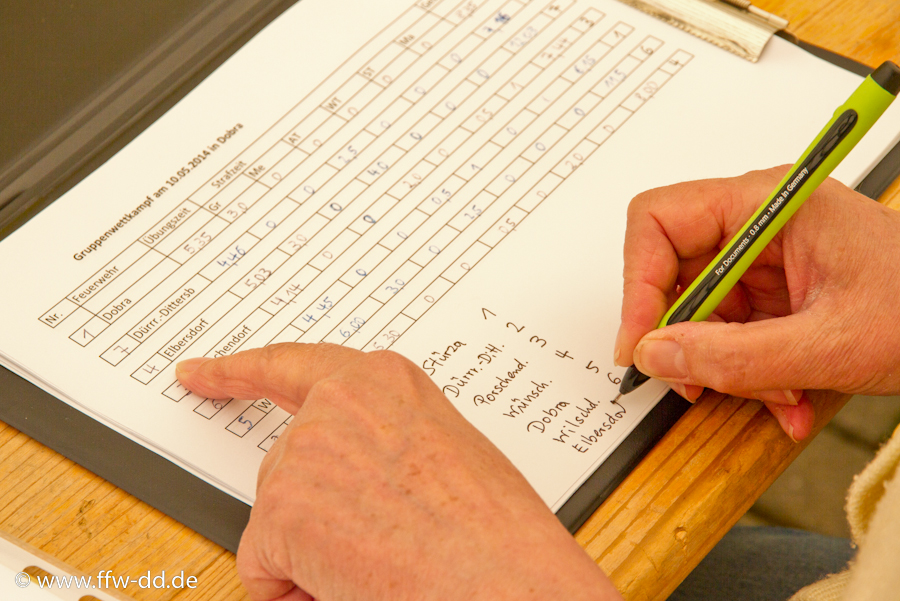 Gruppenwettkampf am 10.05.2014 in Dobra
Nr. Feuerwehr Übungszeit Strafzeit
Gr Me AT WT ST Ma
1 Dobra 5.35 3,0 0 0 0 0 0
7 Dürrr.-Dittersb 4,46 0 0 2,5 0 0 0
4 Elbersdorf 5,03 2,0 0 4,0 0
chendorf 4,14 0 0 2,0 0 0,5 1
4,45 0 0 0,5 1 0
5 W 6,00 3,0 0 2,5 0 0
5.30 0 0 0,5 0 2,0 0 8,00 7
Stürza 1
Dürrr.-Ditt. 2
Porschend. 3
Wünsch. 4
Dobra 5
Wilschd. 6
Elbersdor
For Documents · 0.8 mm · Made in Germany
© www.ffw-dd.de